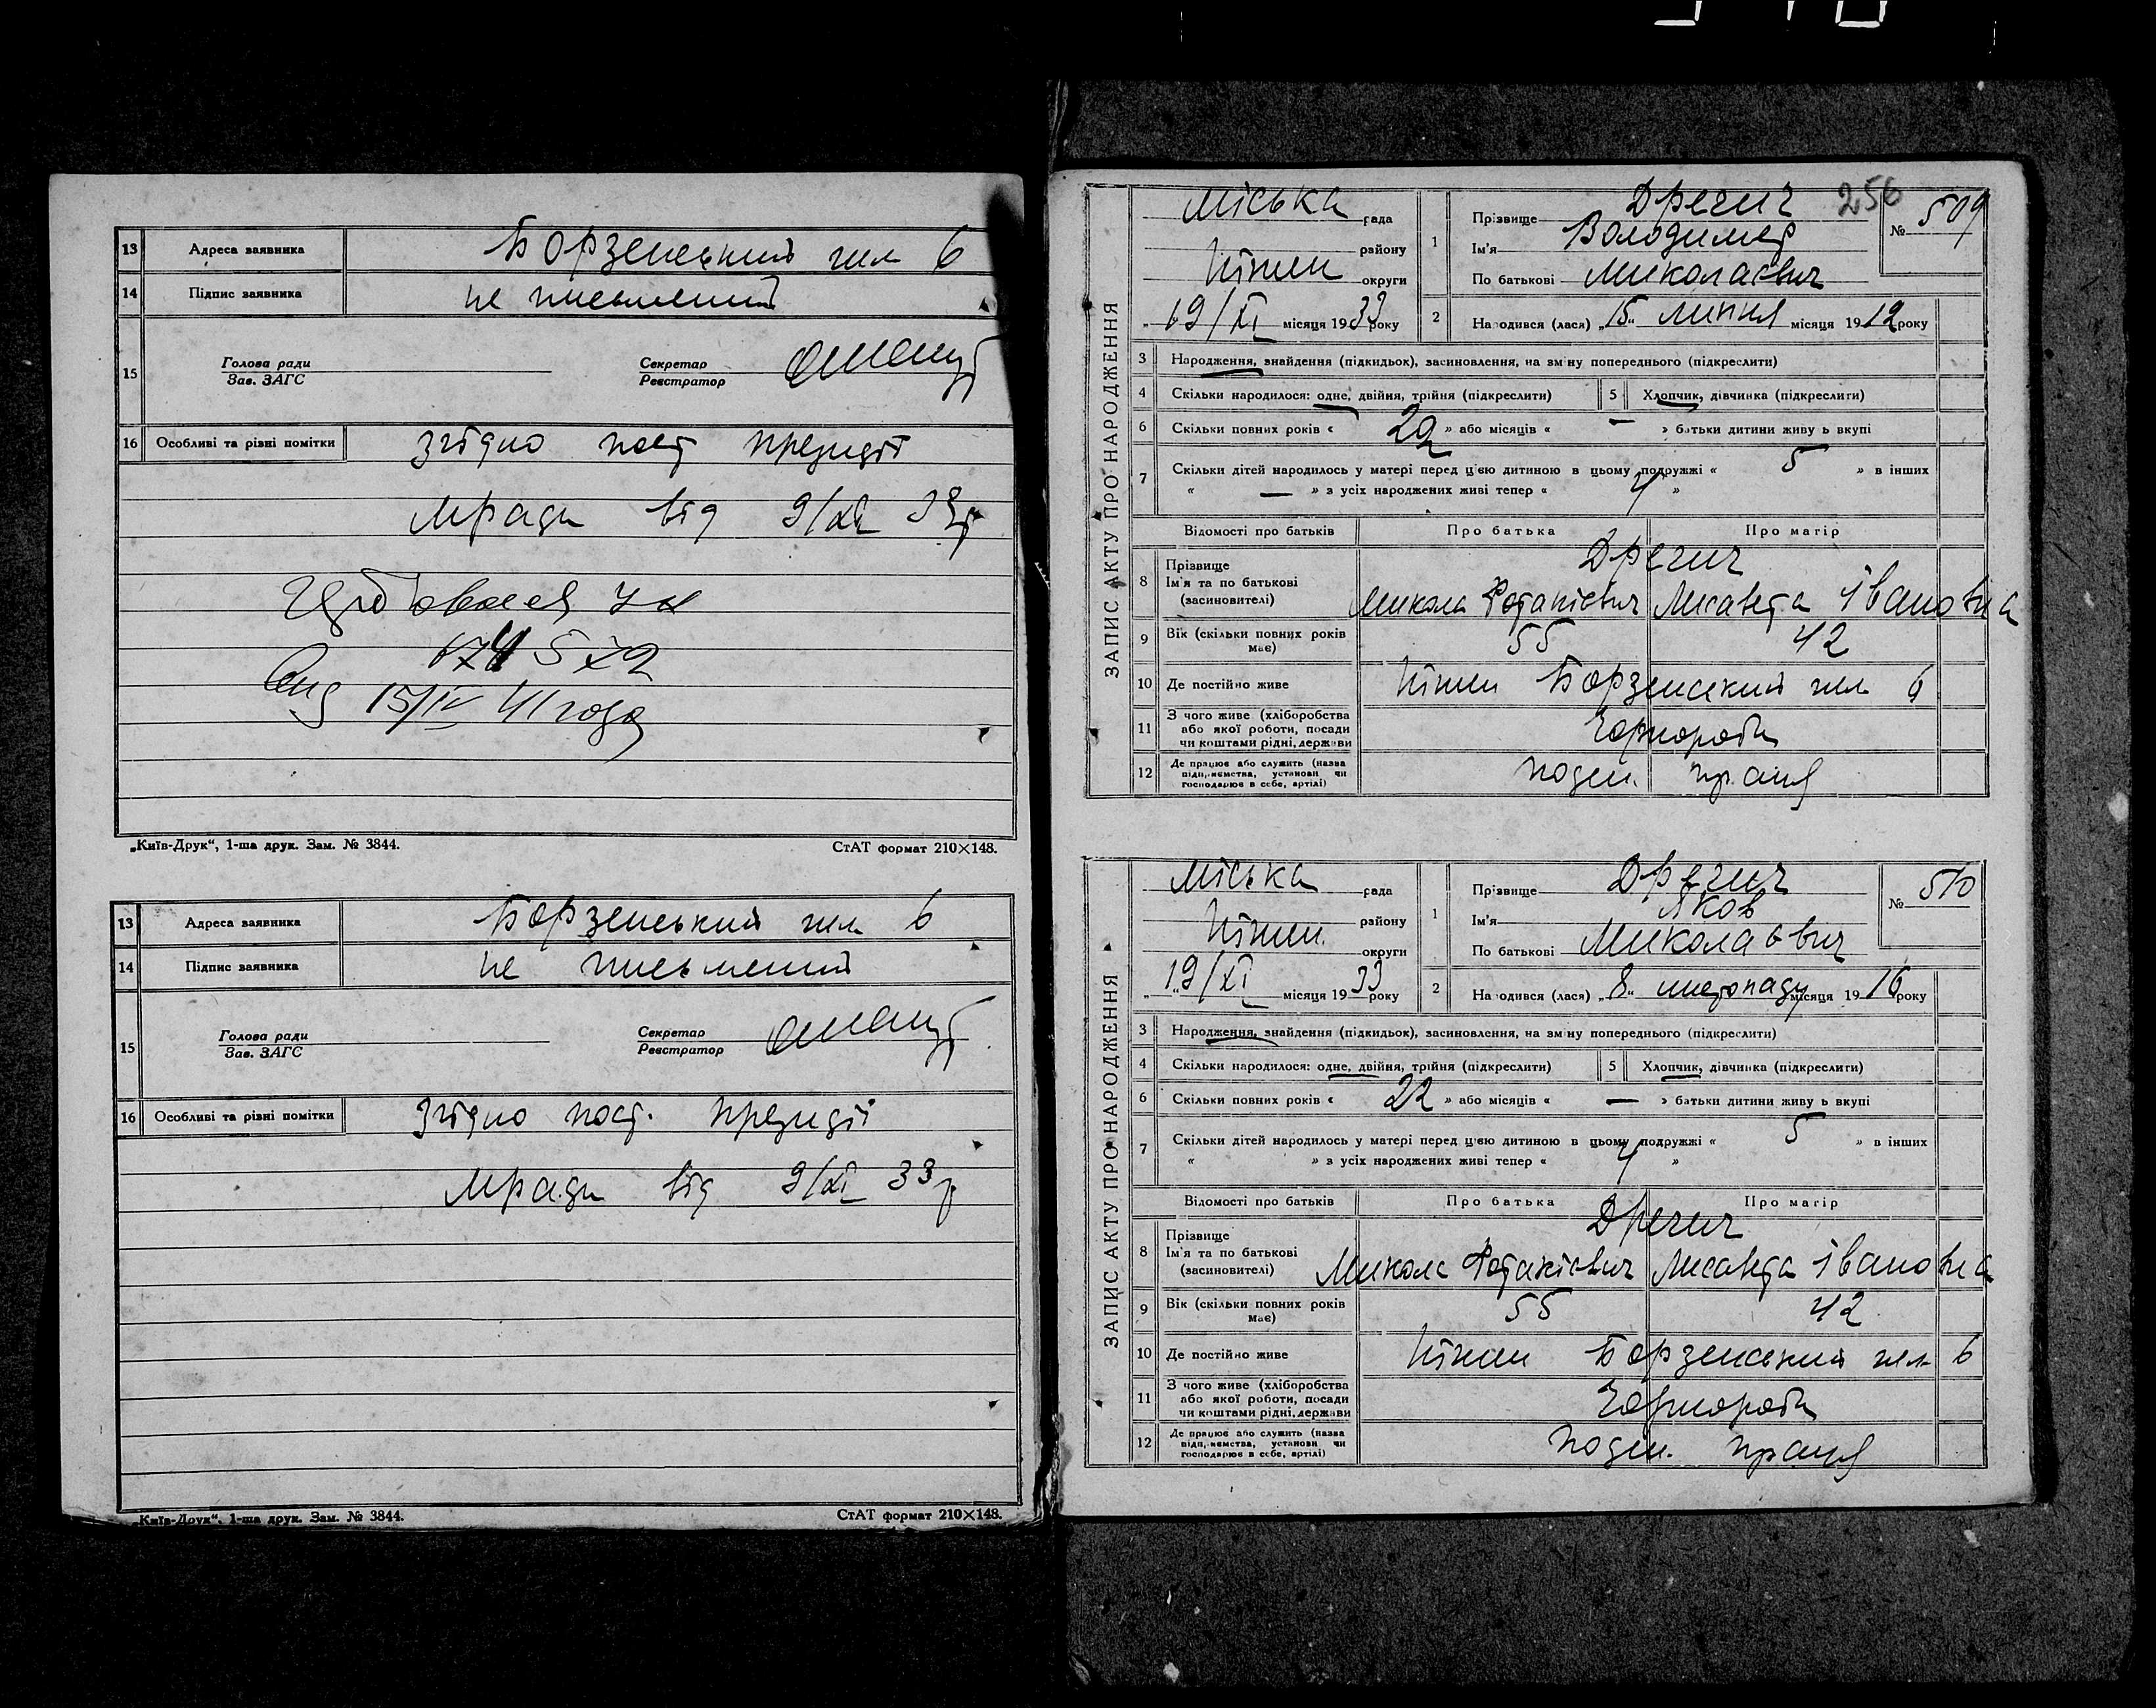 13 Адреса заявника Борзенський шлях 6
14 Підпис заявника не письменний
15 Голова ради Секретар
Зав. ЗАГС Реєстратор
16 Особливі та різні помітки згідно пост президії
мради від 9/XI 33р
15/IV 41 года
„Київ-Друк“, 1-ша друк. Зам. № 3844. СтАТ формат 210×148.
13 Адреса заявника Борзенський шлях 6
14 Підпис заявника не письменний
15 Голова ради Секретар
Зав. ЗАГС Реєстратор
16 Особливі та різні помітки згідно пост. президії
мради від 9/XI 33р
„Київ-Друк“, 1-ша друк. Зам. № 3844. СтАТ формат 210×148.
256
ЗАПИС АКТУ ПРО НАРОДЖЕННЯ
міська рада
району
Ніжин округи
„19/XI місяця 1933 року
№ 509
1 Прізвище Дрегич
Ім'я Володимер
По батькові Миколаєвич
2 Народився (лася) „15“ липня місяця 1912 року
3 Народження, знайдення (підкидьок), засиновлення, на зміну попереднього (підкреслити)
4 Скільки народилося: одне, двійня, трійня (підкреслити) 5 Хлопчик, дівчинка (підкреслити)
6 Скільки повних років « » або місяців « — » батьки дитини живуть вкупі
7 Скільки дітей народилось у матері перед цією дитиною в цьому подружжі « 5 » в інших
« — » з усіх народжених живі тепер « 4 »
Відомості про батьків Про батька Про матір
8 Прізвище Дрегич
Ім'я та по батькові
(засиновителі) Микола Потапієвич Лисавета Івановна
9 Вік (скільки повних років має) 55 42
10 Де постійно живе Ніжин Борзенский шлях 6
11 З чого живе (хліборобства
або якої роботи, посади
чи коштами рідні, держави Чорнороби
12 Де працює або служить (назва
підприємства, установи чи
господарює в себе, артілі) поден. праця
ЗАПИС АКТУ ПРО НАРОДЖЕННЯ
міська рада
району
Ніжин. округи
„19/XI місяця 1933 року
№ 510
1 Прізвище Дрегич
Ім'я Яков
По батькові Миколаевич
2 Народився (лася) „8“ листопаду місяця 1916 року
3 Народження, знайдення (підкидьок), засиновлення, на зміну попереднього (підкреслити)
4 Скільки народилося: одне, двійня, трійня (підкреслити) 5 Хлопчик, дівчинка (підкреслити)
6 Скільки повних років « 22 » або місяців « — » батьки дитини живуть вкупі
7 Скільки дітей народилось у матері перед цією дитиною в цьому подружжі « 5 » в інших
« » з усіх народжених живі тепер « 4 »
Відомості про батьків Про батька Про матір
8 Прізвище Дрегич
Ім'я та по батькові
(засиновителі) Микола Потапієвич Лисавета Івановна
9 Вік (скільки повних років має) 55 42
10 Де постійно живе Ніжин Борзенський шлях 6
11 З чого живе (хліборобства
або якої роботи, посади
чи коштами рідні, держави Чорнороби
12 Де працює або служить (назва
підприємства, установи чи
господарює в себе, артілі) поден. праця